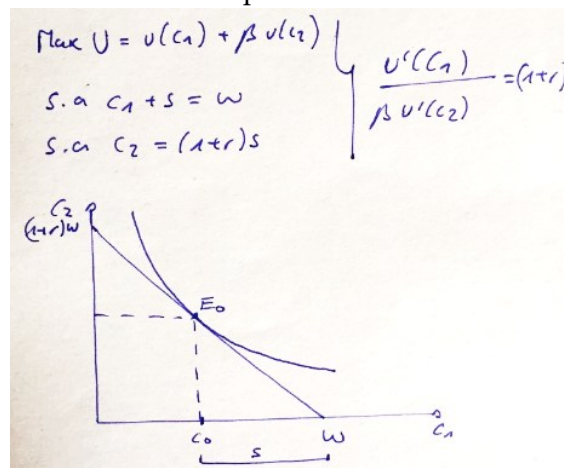 Max U = u(c₁) + β u(c₂)
s.a c₁ + s = w
s.a c₂ = (1+r)s
u'(c₁)
β u'(c₂)
= (1+r)
c₂
(1+r)w
E₀
c₀
w
c₁
s